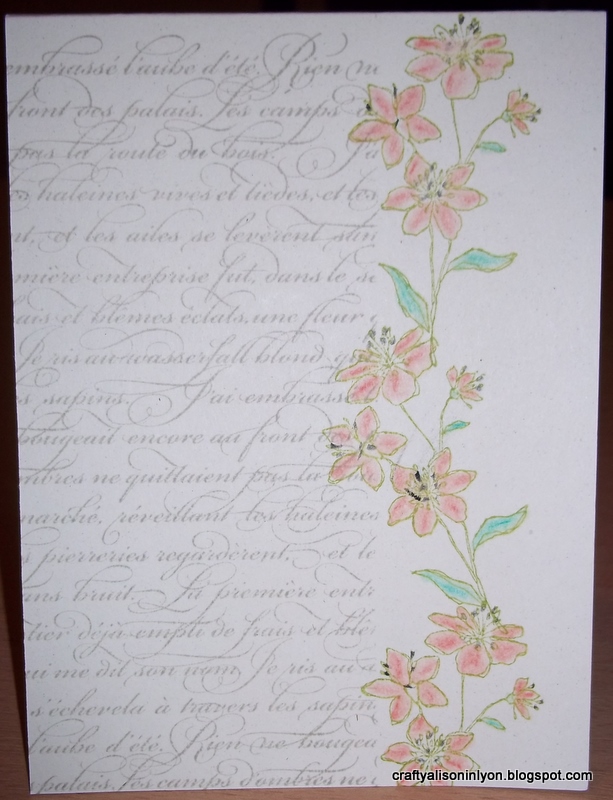 embrassé l'aube d'été. Rien ne
front des palais. Les camps d
pas la route du bois. J'a
s haleines vives et tièdes, et les
nt, et les ailes se levèrent sans
mière entreprise fut, dans le se
ais et blêmes éclats, une fleur q
Je ris au wasserfall blond qu
s sapins. J'ai embrassé
bougeait encore au front
mbres ne quittaient pas la
marché, réveillant les haleines
s pierreries regardèrent, et le
ans bruit. La première entr
tier déjà empli de frais et blê
ui me dit son nom. Je ris au
s'échevela à travers les sapins
l'aube d'été. Rien ne bougea
palais. Les camps d'ombres ne
craftyalisoninlyon.blogspot.com